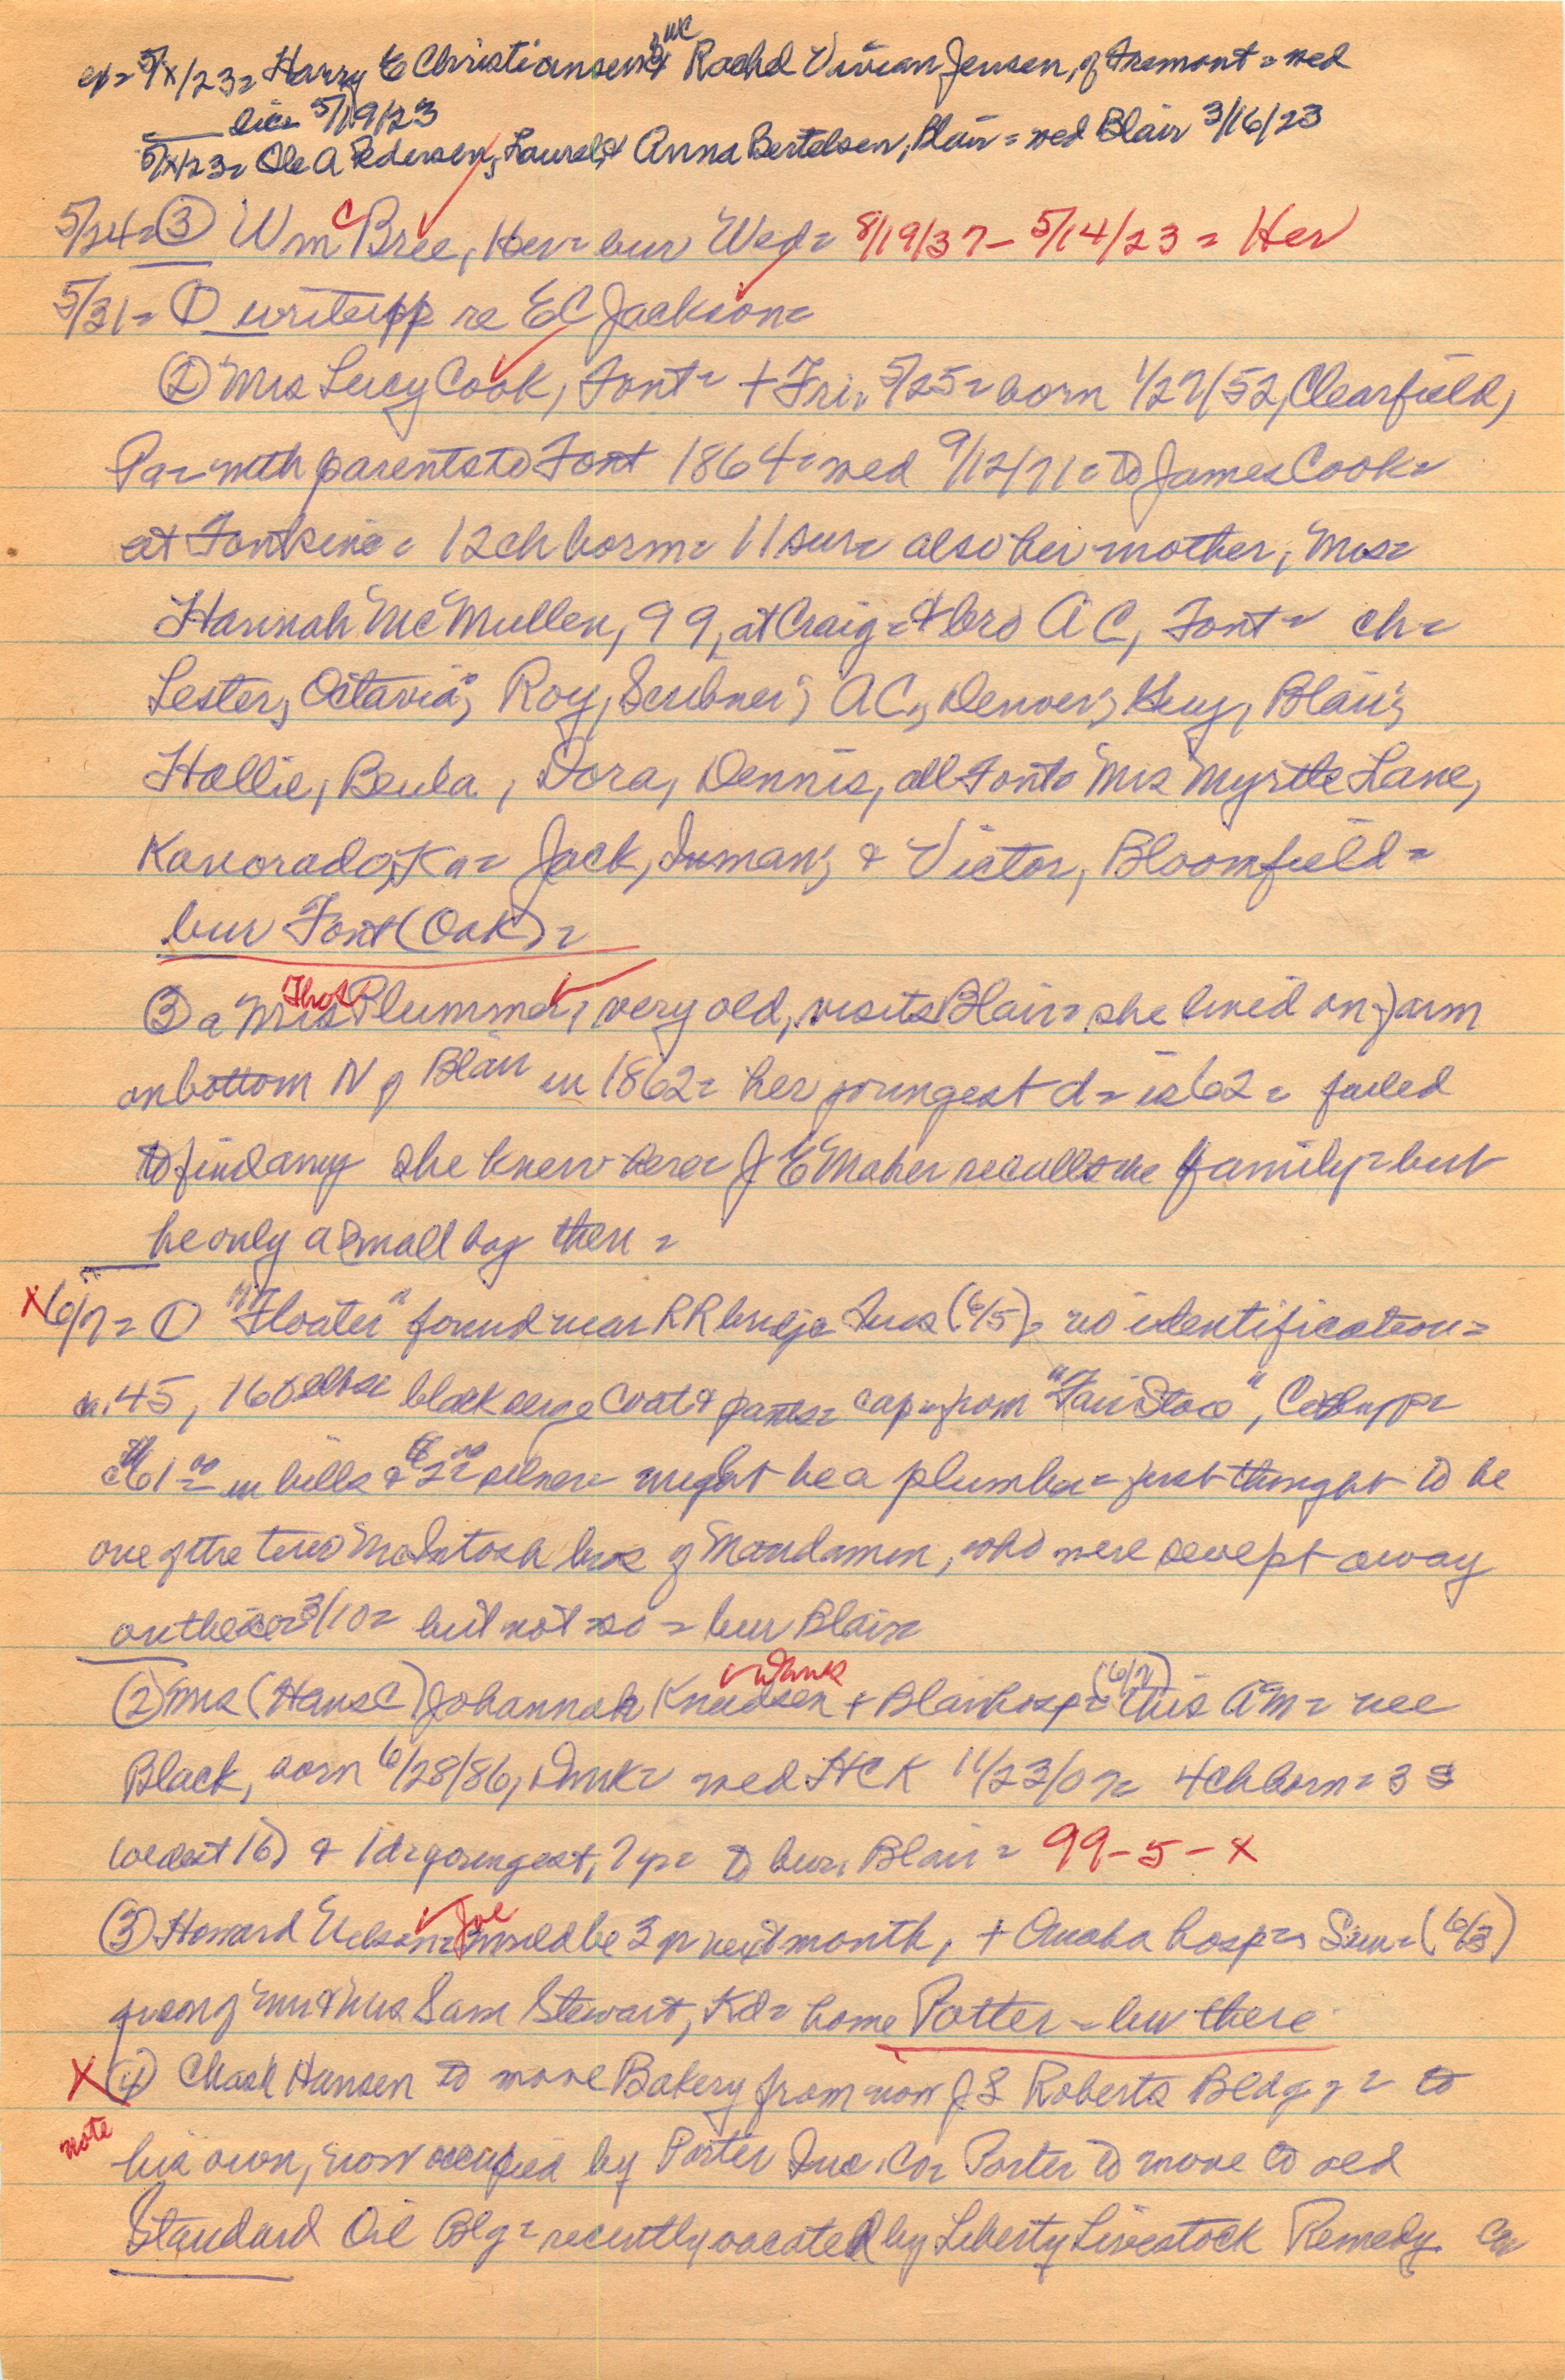 5/x/23= Harry E Christiansen & Rachel Vivian Jensen, of Fremont = wed
lic= 5/19/23
5/x/23= Ole A Pedersen, Laurel, & Anna Bertelsen, Blair = wed Blair 3/16/23
5/24= ③ Wm C Bree, Her= bur Wed= 8/19/37 - 5/14/23 = Her
5/31= ① writeupp re EC Jackson=
② Mrs Lucy Cook, Font= + Fri, 5/25= born 1/27/52, Clearfield,
Pa= with parents to Font 1864= wed 9/12/71= to James Cook=
at Font since = 12 ch born= 11 sur= also her mother, Mrs=
Hannah McMullen, 99, at Craig= & bro A C, Font= ch=
Lester, Octavia; Roy, Scribner; AC, Denver; Guy, Blair;
Hollie, Beula, Dora, Dennis, all Font= Mrs Myrtle Lane,
Kanorado, Ka= Jack, Inman; & Victor, Bloomfield=
bur Font (Oak)=
③ a Mrs Thos Plummer, very old, visits Blair= she lived on farm
on bottom N of Blair in 1862= her youngest d= is 62= failed
to find any she knew here= J E Maher recalls the family= but
he only a small boy then=
x 6/7= ① "Floater" found near RR bridge Tues (6/5)= no identification=
ca. 45, 160 lbs= black serge coat & pants= cap from "Fair Store",
$61⁰⁰ in bills & $2⁰⁰ silver= might be a plumber= first thought to be
one of the two McIntosh bros of Mondamin, who were swept away
on the ice 3/10= but not so = bur Blair=
② Mrs (Hans C) Johannah Knudsen + Blair hosp= (6/7) this AM= nee
Black, born 6/28/86, Dmk= wed HCK 11/23/07= 4 ch born= 3 s
(oldest 16) & 1 d= youngest, 7 yr= to bur, Blair= 99-5-x
③ Howard Nelson= would be 3 yr next month, + Omaha hosp= Sun= (6/3)
gson of Mr & Mrs Sam Stewart, Kd= home Potter = bur there
X ④ Chas H Hansen to move Bakery from now J S Roberts Bldg, = to
note
his own, now occupied by Porter Inc. Co= Porter to move to old
Standard Oil Blg= recently vacated by Liberty Livestock Remedy Co